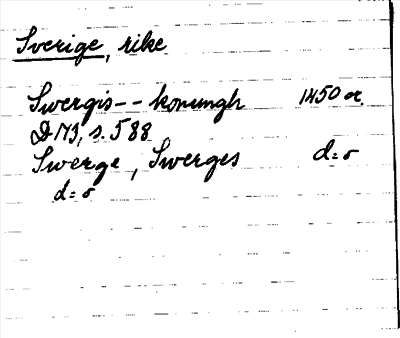 Sverige, rike
Swergis-- konungh 1450 or.
D 173, s. 588
Swerge, Swerges d:o
d:o